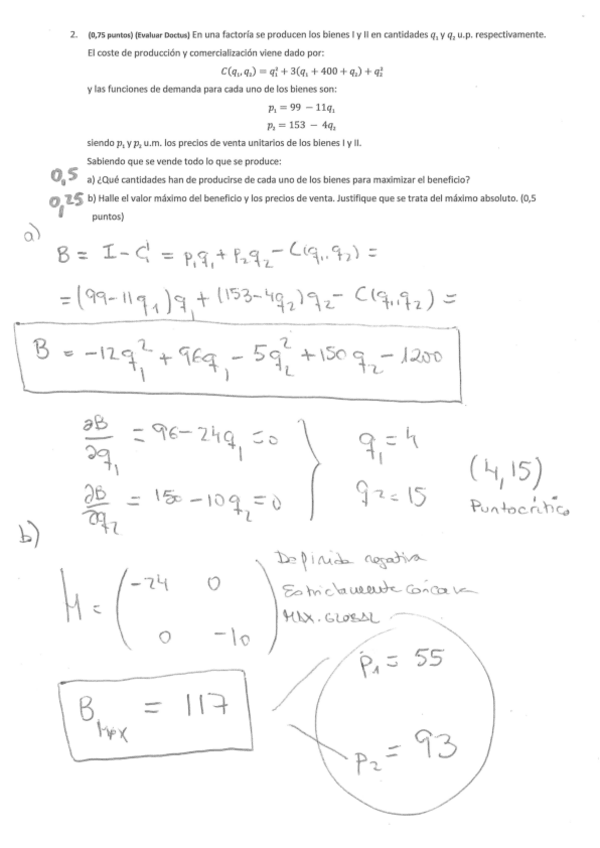 2. (0,75 puntos) (Evaluar Doctus) En una factoría se producen los bienes I y II en cantidades q₁ y q₂ u.p. respectivamente.
El coste de producción y comercialización viene dado por:
C(q₁, q₂) = q₁² + 3(q₁ + 400 + q₂) + q₂²
y las funciones de demanda para cada uno de los bienes son:
p₁ = 99 − 11q₁
p₂ = 153 − 4q₂
siendo p₁ y p₂ u.m. los precios de venta unitarios de los bienes I y II.
Sabiendo que se vende todo lo que se produce:
0,5 a) ¿Qué cantidades han de producirse de cada uno de los bienes para maximizar el beneficio?
0,25 b) Halle el valor máximo del beneficio y los precios de venta. Justifique que se trata del máximo absoluto. (0,5
puntos)
a)
B = I - C = p₁q₁ + p₂q₂ - C(q₁, q₂) =
= (99-11q₁)q₁ + (153-4q₂)q₂ - C(q₁,q₂) =
B = -12q₁² + 96q₁ - 5q₂² + 150q₂ - 1200
∂B/∂q₁ = 96-24q₁=0 } q₁=4
∂B/∂q₂ = 150-10q₂=0 q₂=15
(4,15)
Punto crítico
b)
H = (-24 0
0 -10)
Definida negativa
Estrictamente cóncava
MAX. GLOBAL
B MAX = 117
p₁ = 55
p₂ = 93